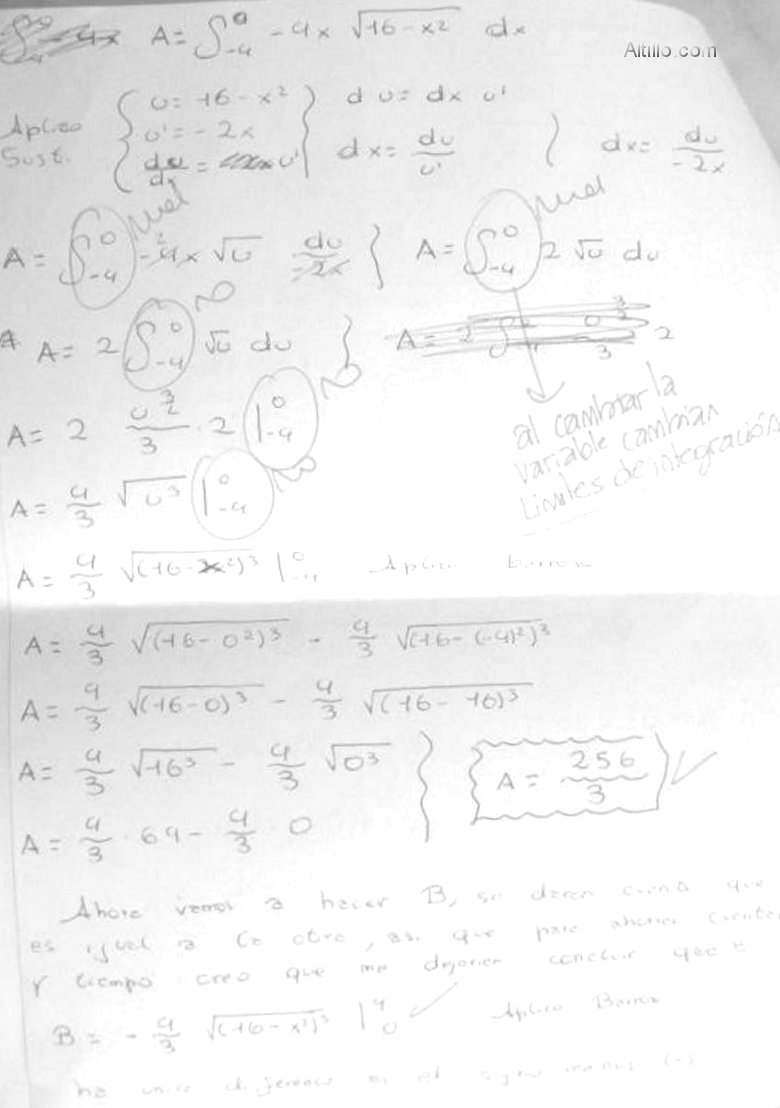 A = ∫₋₄⁰ -4x √(16-x²) dx
Altillo.com
Aplico Sust. { u = 16 - x² } du = dx u'
u' = -2x
du/dx = u' dx = du/u' } dx = du/-2x
A = ∫₋₄⁰ -4x √u du/-2x } A = ∫₋₄⁰ 2 √u du
mal mal
A = 2 ∫₋₄⁰ √u du }
no
A = 2 u^(3/2)/3 · 2 |₋₄⁰
no
al cambiar la
variable cambian
Limites de integración
A = 4/3 √u³ |₋₄⁰
no
A = 4/3 √(16-x²)³ |₋₄⁰ Aplico barrow
A = 4/3 √(16-0²)³ - 4/3 √(16-(-4)²)³
A = 4/3 √(16-0)³ - 4/3 √(16-16)³
A = 4/3 √16³ - 4/3 √0³ } A = 256/3 ✓
A = 4/3 · 64 - 4/3 · 0
Ahora vamos a hacer B, se daran cuenta que
es igual a la otra, asi que para ahorrar cuentas
y tiempo creo que me dejarian concluir que
B = -4/3 √(16-x²)³ |₀⁴ ✓ Aplico Barrow
La unica diferencia es el signo menos (-)